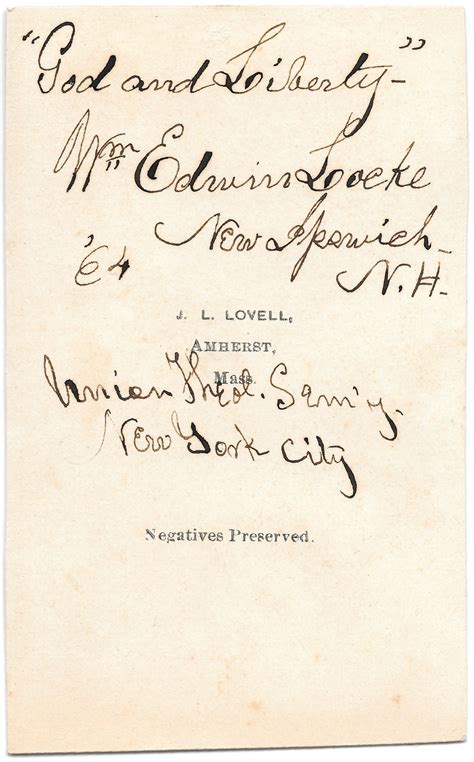 "God and Liberty-"
Wm Edwin Locke
New Ipswich-
'64 N.H-
J. L. LOVELL,
AMHERST,
Mass.
Union Theol. Sem'y.
New York City
Negatives Preserved.